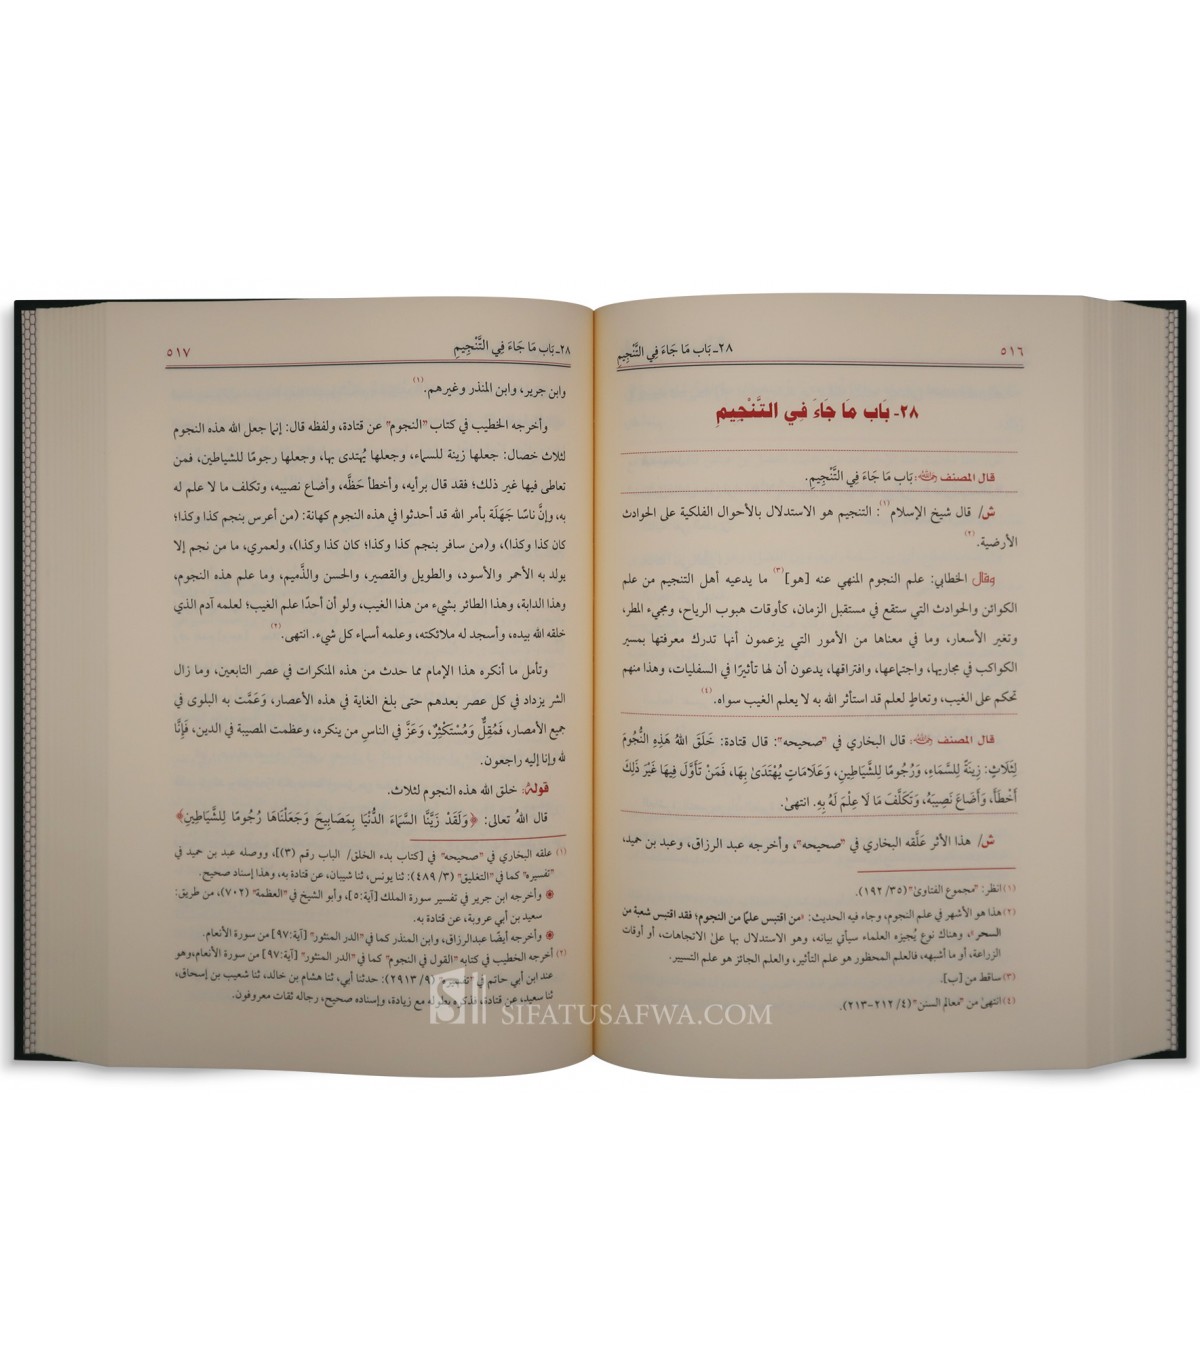 ٥١٦
٢٨ـ بَاب مَا جَاءَ فِي التَّنْجِيمِ
٢٨- بَاب مَا جَاءَ فِي التَّنْجِيمِ
قال المصنف ﵀: بَاب مَا جَاءَ فِي التَّنْجِيمِ.
ش/ قال شيخ الإسلام(١): التنجيم هو الاستدلال بالأحوال الفلكية على الحوادث
الأرضية.(٢)
وقال الخطابي: علم النجوم المنهي عنه [هو](٣) ما يدعيه أهل التنجيم من علم
الكوائن والحوادث التي ستقع في مستقبل الزمان، كأوقات هبوب الرياح، ومجيء المطر،
وتغير الأسعار، وما في معناها من الأمور التي يزعمون أنها تدرك معرفتها بمسير
الكواكب في مجاريها، واجتماعها، وافتراقها، يدعون أن لها تأثيرًا في السفليات، وهذا منهم
تحكم على الغيب، وتعاطٍ لعلم قد استأثر الله به لا يعلم الغيب سواه.(٤)
قال المصنف ﵀: قال البخاري في "صحيحه": قال قتادة: خَلَقَ اللهُ هَذِهِ النُّجُومَ
لِثَلَاثٍ: زِينَةً لِلسَّمَاءِ، وَرُجُومًا لِلشَّيَاطِينِ، وَعَلَامَاتٍ يُهْتَدَىٰ بِهَا، فَمَنْ تَأَوَّلَ فِيهَا غَيْرَ ذَلِكَ
أَخْطَأَ، وَأَضَاعَ نَصِيبَهُ، وَتَكَلَّفَ مَا لَا عِلْمَ لَهُ بِهِ. انتهىٰ.
ش/ هذا الأثر عَلَّقه البخاري في "صحيحه"، وأخرجه عبد الرزاق، وعبد بن حميد،
(١) انظر: "مجموع الفتاوىٰ" (٣٥/ ١٩٢).
(٢) هذا هو الأشهر في علم النجوم، وجاء فيه الحديث: «من اقتبس علمًا من النجوم؛ فقد اقتبس شعبة من
السحر»، وهناك نوع يُجيزه العلماء سيأتي بيانه، وهو الاستدلال بها علىٰ الاتجاهات، أو أوقات
الزراعة، أو ما أشبهه، فالعلم المحظور هو علم التأثير، والعلم الجائز هو علم التسيير.
(٣) ساقط من [ب].
(٤) انتهىٰ من "معالم السنن" (٤/ ٢١٢-٢١٣).
٢٨ـ بَاب مَا جَاءَ فِي التَّنْجِيمِ
٥١٧
وابن جرير، وابن المنذر وغيرهم.(١)
وأخرجه الخطيب في كتاب "النجوم" عن قتادة، ولفظه قال: إنما جعل الله هذه النجوم
لثلاث خصال: جعلها زينة للسماء، وجعلها يُهتدى بها، وجعلها رجومًا للشياطين، فمن
تعاطى فيها غير ذلك؛ فقد قال برأيه، وأخطأ حَظَّه، وأضاع نصيبه، وتكلف ما لا علم له
به، وإنَّ ناسًا جَهَلَة بأمر الله قد أحدثوا في هذه النجوم كهانة: (من أعرس بنجم كذا وكذا؛
كان كذا وكذا)، و(من سافر بنجم كذا وكذا؛ كان كذا وكذا)، ولعمري، ما من نجم إلا
يولد به الأحمر والأسود، والطويل والقصير، والحسن والذَّميم، وما علم هذه النجوم،
وهذا الدابة، وهذا الطائر بشيء من هذا الغيب، ولو أن أحدًا علم الغيب؛ لعلمه آدم الذي
خلقه الله بيده، وأسجد له ملائكته، وعلمه أسماء كل شيء. انتهى.(٢)
وتأمل ما أنكره هذا الإمام مما حدث من هذه المنكرات في عصر التابعين، وما زال
الشر يزداد في كل عصر بعدهم حتى بلغ الغاية في هذه الأعصار، وَعَمَّت به البلوى في
جميع الأمصار، فَمُقِلٌّ وَمُسْتَكْثِرٌ، وَعَزَّ في الناس من ينكره، وعظمت المصيبة في الدين، فَإِنَّا
لله وإنا إليه راجعون.
قوله: خلق الله هذه النجوم لثلاث.
قال اللهُ تعالى: ﴿وَلَقَدْ زَيَّنَّا السَّمَاءَ الدُّنْيَا بِمَصَابِيحَ وَجَعَلْنَاهَا رُجُومًا لِلشَّيَاطِينِ﴾
(١) علقه البخاري في "صحيحه" في [كتاب بدء الخلق/ الباب رقم (٣)]، ووصله عبد بن حميد في
"تفسيره" كما في "التغليق" (٣/ ٤٨٩): ثنا يونس، ثنا شيبان، عن قتادة به، وهذا إسناد صحيح.
وأخرجه ابن جرير في تفسير سورة الملك [آية:٥]، وأبو الشيخ في "العظمة" (٧٠٢)، من طريق:
سعيد بن أبي عروبة، عن قتادة به.
وأخرجه أيضًا عبدالرزاق، وابن المنذر كما في "الدر المنثور" [آية:٩٧] من سورة الأنعام.
(٢) أخرجه الخطيب في كتابه "القول في النجوم" كما في "الدر المنثور" [آية:٩٧] من سورة الأنعام،وهو
عند ابن أبي حاتم في "تفسيره" (٩/ ٢٩١٣): حدثنا أبي، ثنا هشام بن خالد، ثنا شعيب بن إسحاق،
ثنا سعيد، عن قتادة، فذكره بطوله مع زيادة، وإسناده صحيح، رجاله ثقات معروفون.
SIFATUSAFWA.COM